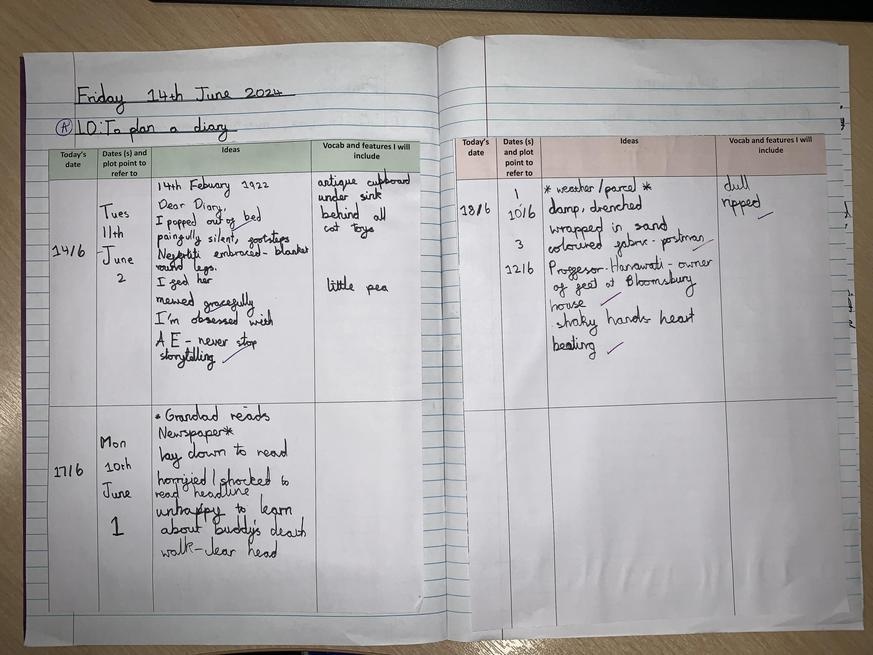 Friday 14th June 2024
A LO: To plan a diary
Today's date
Dates (s) and plot point to refer to
Ideas
Vocab and features I will include
14/6
Tues
11th
June
2
14th Febuary 1922
Dear Diary,
I popped out of bed
painfully silent, footsteps
Nefertiti embraced - blanket
round legs.
I fed her
mewed gracefully
I'm obsessed with
A E - never stop
storytelling
antique cupboard
under sink
behind all
cat toys
little pea
17/6
Mon
10th
June
1
* Grandad reads
Newspaper*
lay down to read
horrified / shocked to
read headline
unhappy to learn
about buddy's death
walk - clear head
Today's date
Dates (s) and plot point to refer to
Ideas
Vocab and features I will include
18/6
1
10/6
3
12/6
* weather / parcel *
damp, drenched
wrapped in sand
coloured fabric - postman
Proffesor - Hanawati - owner
of feat at Bloomsbury
house
shaky hands - heart
beating
dull
ripped